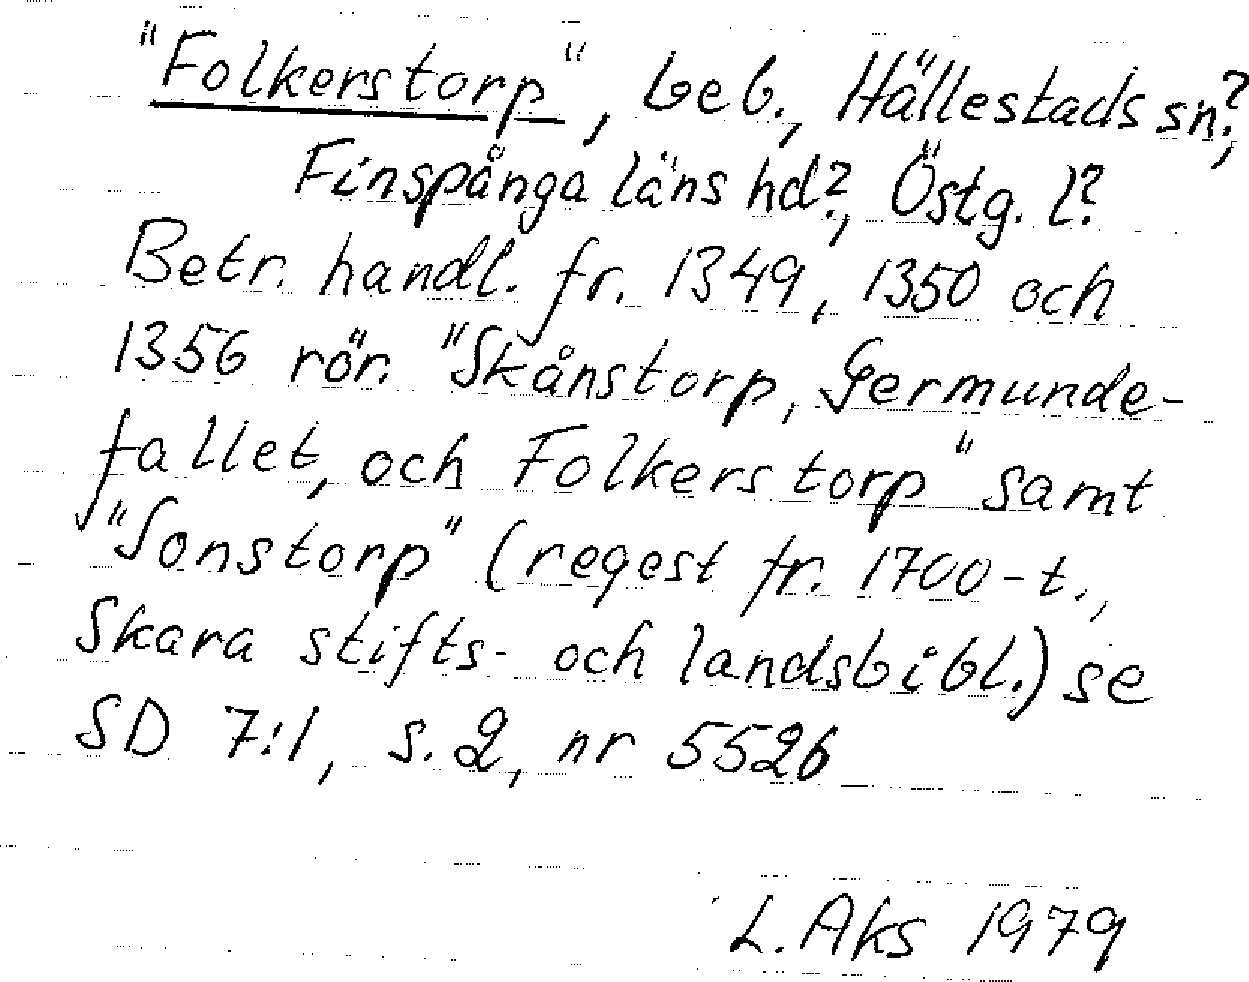 "Folkerstorp", beb., Hällestads sn?,
Finspånga läns hd?, Östg. l?
Betr. handl. fr. 1349, 1350 och
1356 rör. "Skånstorp, Germunde-
fallet, och Folkerstorp" samt
"Sonstorp" (regest fr. 1700-t.,
Skara stifts- och landsbibl.) se
SD 7:1, s. 2, nr 5526
L. Aks 1979